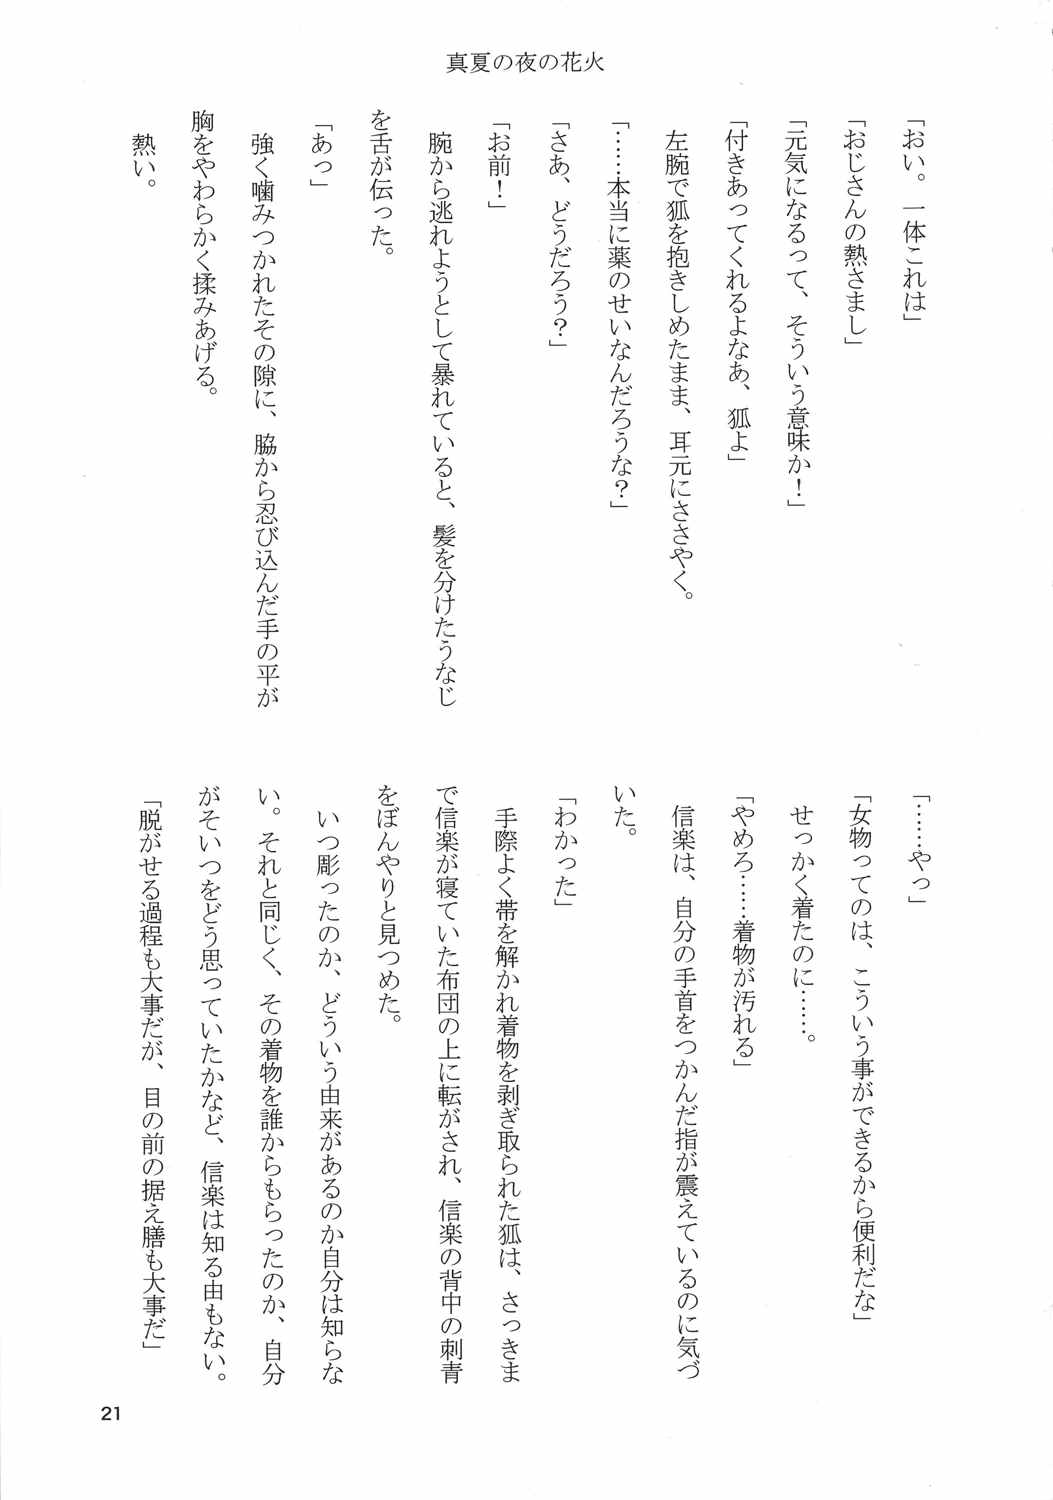 真夏の夜の花火
「おい。一体これは」
「おじさんの熱さまし」
「元気になるって、そういう意味か！」
「付きあってくれるよなあ、狐よ」
　左腕で狐を抱きしめたまま、耳元にささやく。
「……本当に薬のせいなんだろうな？」
「さあ、どうだろう？」
「お前！」
　腕から逃れようとして暴れていると、髪を分けたうなじ
を舌が伝った。
「あっ」
　強く噛みつかれたその隙に、脇から忍び込んだ手の平が
胸をやわらかく揉みあげる。
　熱い。
「……やっ」
「女物ってのは、こういう事ができるから便利だな」
　せっかく着たのに……。
「やめろ……着物が汚れる」
　信楽は、自分の手首をつかんだ指が震えているのに気づ
いた。
「わかった」
　手際よく帯を解かれ着物を剥ぎ取られた狐は、さっきま
で信楽が寝ていた布団の上に転がされ、信楽の背中の刺青
をぼんやりと見つめた。
　いつ彫ったのか、どういう由来があるのか自分は知らな
い。それと同じく、その着物を誰からもらったのか、自分
がそいつをどう思っていたかなど、信楽は知る由もない。
「脱がせる過程も大事だが、目の前の据え膳も大事だ」
21